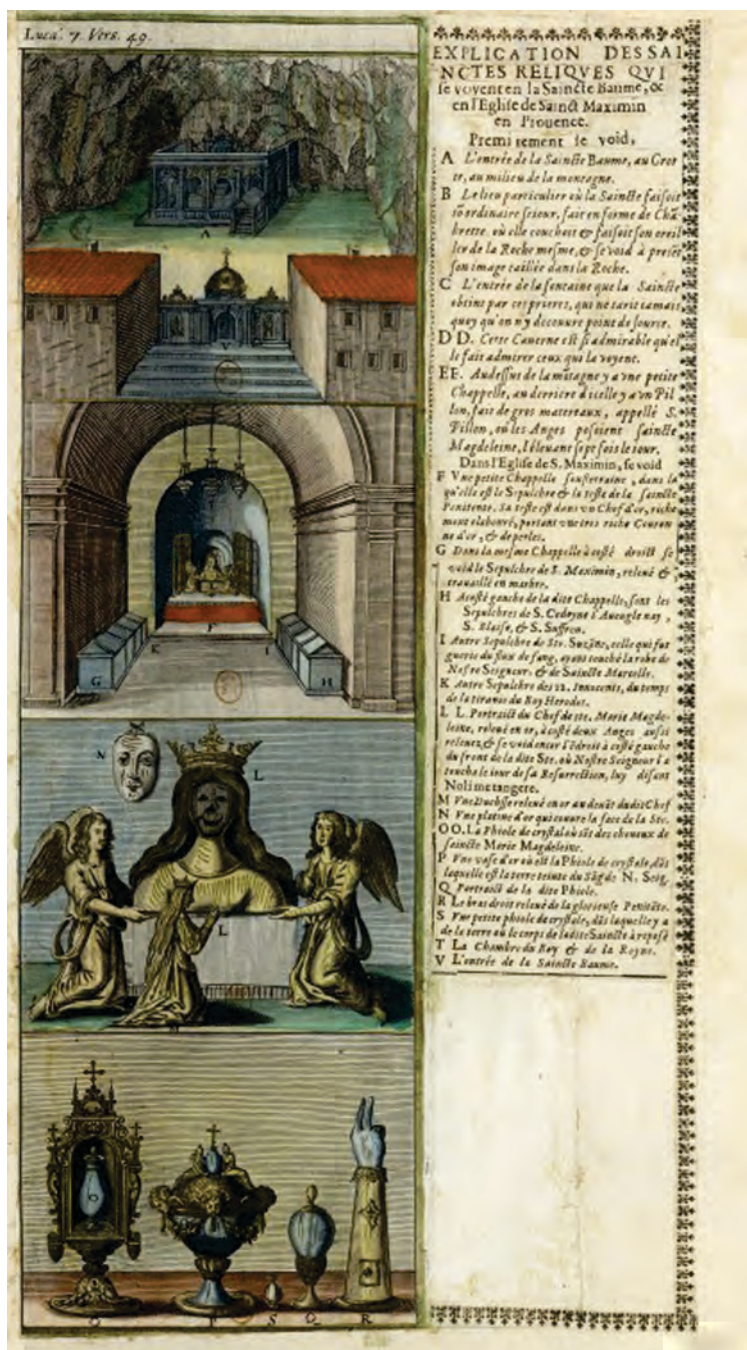 Luca. 7. Vers. 49.
EXPLICATION DES SAI-
NCTES RELIQVES QVI
se voyent en la Saincte Baume, &
en l'Eglise de Sainct Maximin
en Prouence.
Premierement se void,
A L'entrée de la Saincte Baume, au Grot
te, au milieu de la montagne.
B Le lieu particulier où la Saincte faisoit
sō ordinaire seiour, fait en forme de Chā
brette où elle couchoit & faisoit son oreil
ler de la Roche mesme, & se void à presēt
son image taillée dans la Roche.
C L'entrée de la fontaine que la Saincte
obtint par ces prieres, qui ne tarit iamais
quoy qu'on n'y decouure point de source.
D D. Cette Cauerne est si admirable qu'el
le fait admirer ceux qui la voyent.
EE. Au dessus de la mōtagne y a vne petite
Chappelle, au derriere d'icelle y a vn Pil
lon, fait de gros matereaux, appellé S.
Pillon, où les Anges posoient saincte
Magdeleine, l'éleuant sept fois le iour.
Dans l'Eglise de S. Maximin, se void
F Vne petite Chappelle sousterraine, dans la
qu'elle est le Sepulchre & la teste de la saincte
Penitente, sa teste est dans vn Chef d'or, riche
ment elabouré, portant vne tres riche Couron
ne d'or, & de perles.
G Dans la mesme Chappelle à costé droict se
void le Sepulchre de S. Maximin, releué &
trauaillé en marbre.
H A costé gauche de la dite Chappelle, sont les
Sepulchres de S. Cedoyne l'Aueugle nay,
S. Blaise, & S. Suffren.
I Autre Sepulchre de Ste. Suzāne, celle qui fut
guerie du flux de sang, ayant touché la robe de
Nostre Seigneur, & de Saincte Marcelle.
K Autre Sepulchre des 22. Innocents, du temps
de la tirannie du Roy Herodes.
L L. Portraict du Chef de ste. Marie Magde-
leine, releué en or, à costé deux Anges aussi
releuez, & se void encor l'ēdroit à costé gauche
du front de la dite Ste. où Nostre Seigneur l'a
touchée le iour de sa Resurrection, luy disant
Noli me tangere.
M Vne Duchesse releué en or au deuāt dudit Chef
N Vne platine d'or qui couure la face de la Ste.
OO. La Phiole de crystal où sōt des cheueux de
saincte Marie Magdeleine.
P Vne vase d'or où est la Phiole de crystale, dās
laquelle est la terre teinte du Sāg de N. Seig.
Q Portraict de la dite Phiole.
R Le bras droit releué de la glorieuse Penitēte.
S Vne petite phiole de crystale, dās laquelle y a
de la terre où le corps de ladite Saincte à reposé
T La Chambre du Roy & de la Royne.
V L'entrée de la Saincte Baume.
A
V
F
K I
G H
N L
L
M
O
O P S Q R